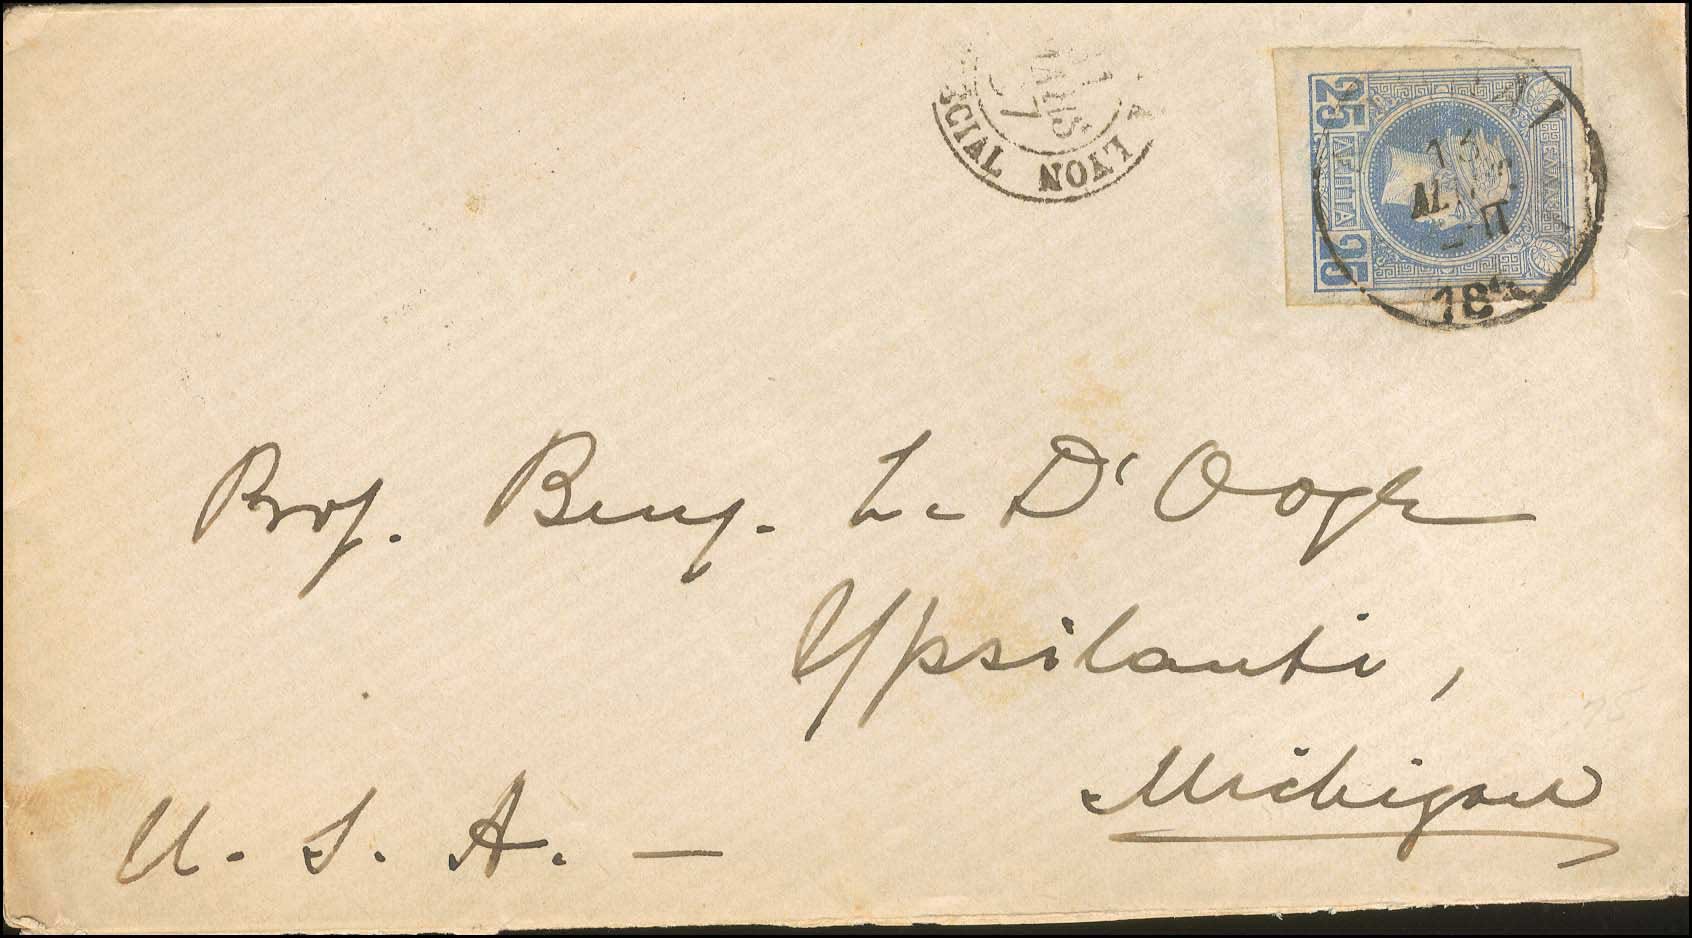 LYON
25 ΛΕΠΤΑ 25
ΕΛΛΑΣ
13
18
Prof. Benj. L. D'Ooge
Ypsilanti,
Michigan
U. S. A. —
75